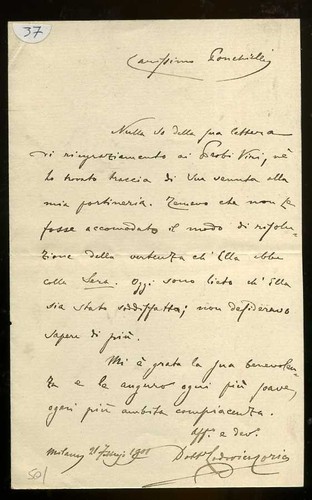 37
Carissimo Ponchielli
Nulla so della sua lettera
di ringraziamento ai Probi Viri, nè
ho trovato traccia di Sua venuta alla
mia portineria. Temevo che non Le
fosse accomodato il modo di risolu-
zione della vertenza ch'Ella ebbe
colla Sera. Oggi sono lieto ch'Ella
sia stato soddisfatto; non desideravo
sapere di più.
Mi è grata la sua benevolen-
za e le auguro ogni più soave,
ogni più ambita compiacenza.
Aff. e dev.
Milano 21 1901
Dott.
50/